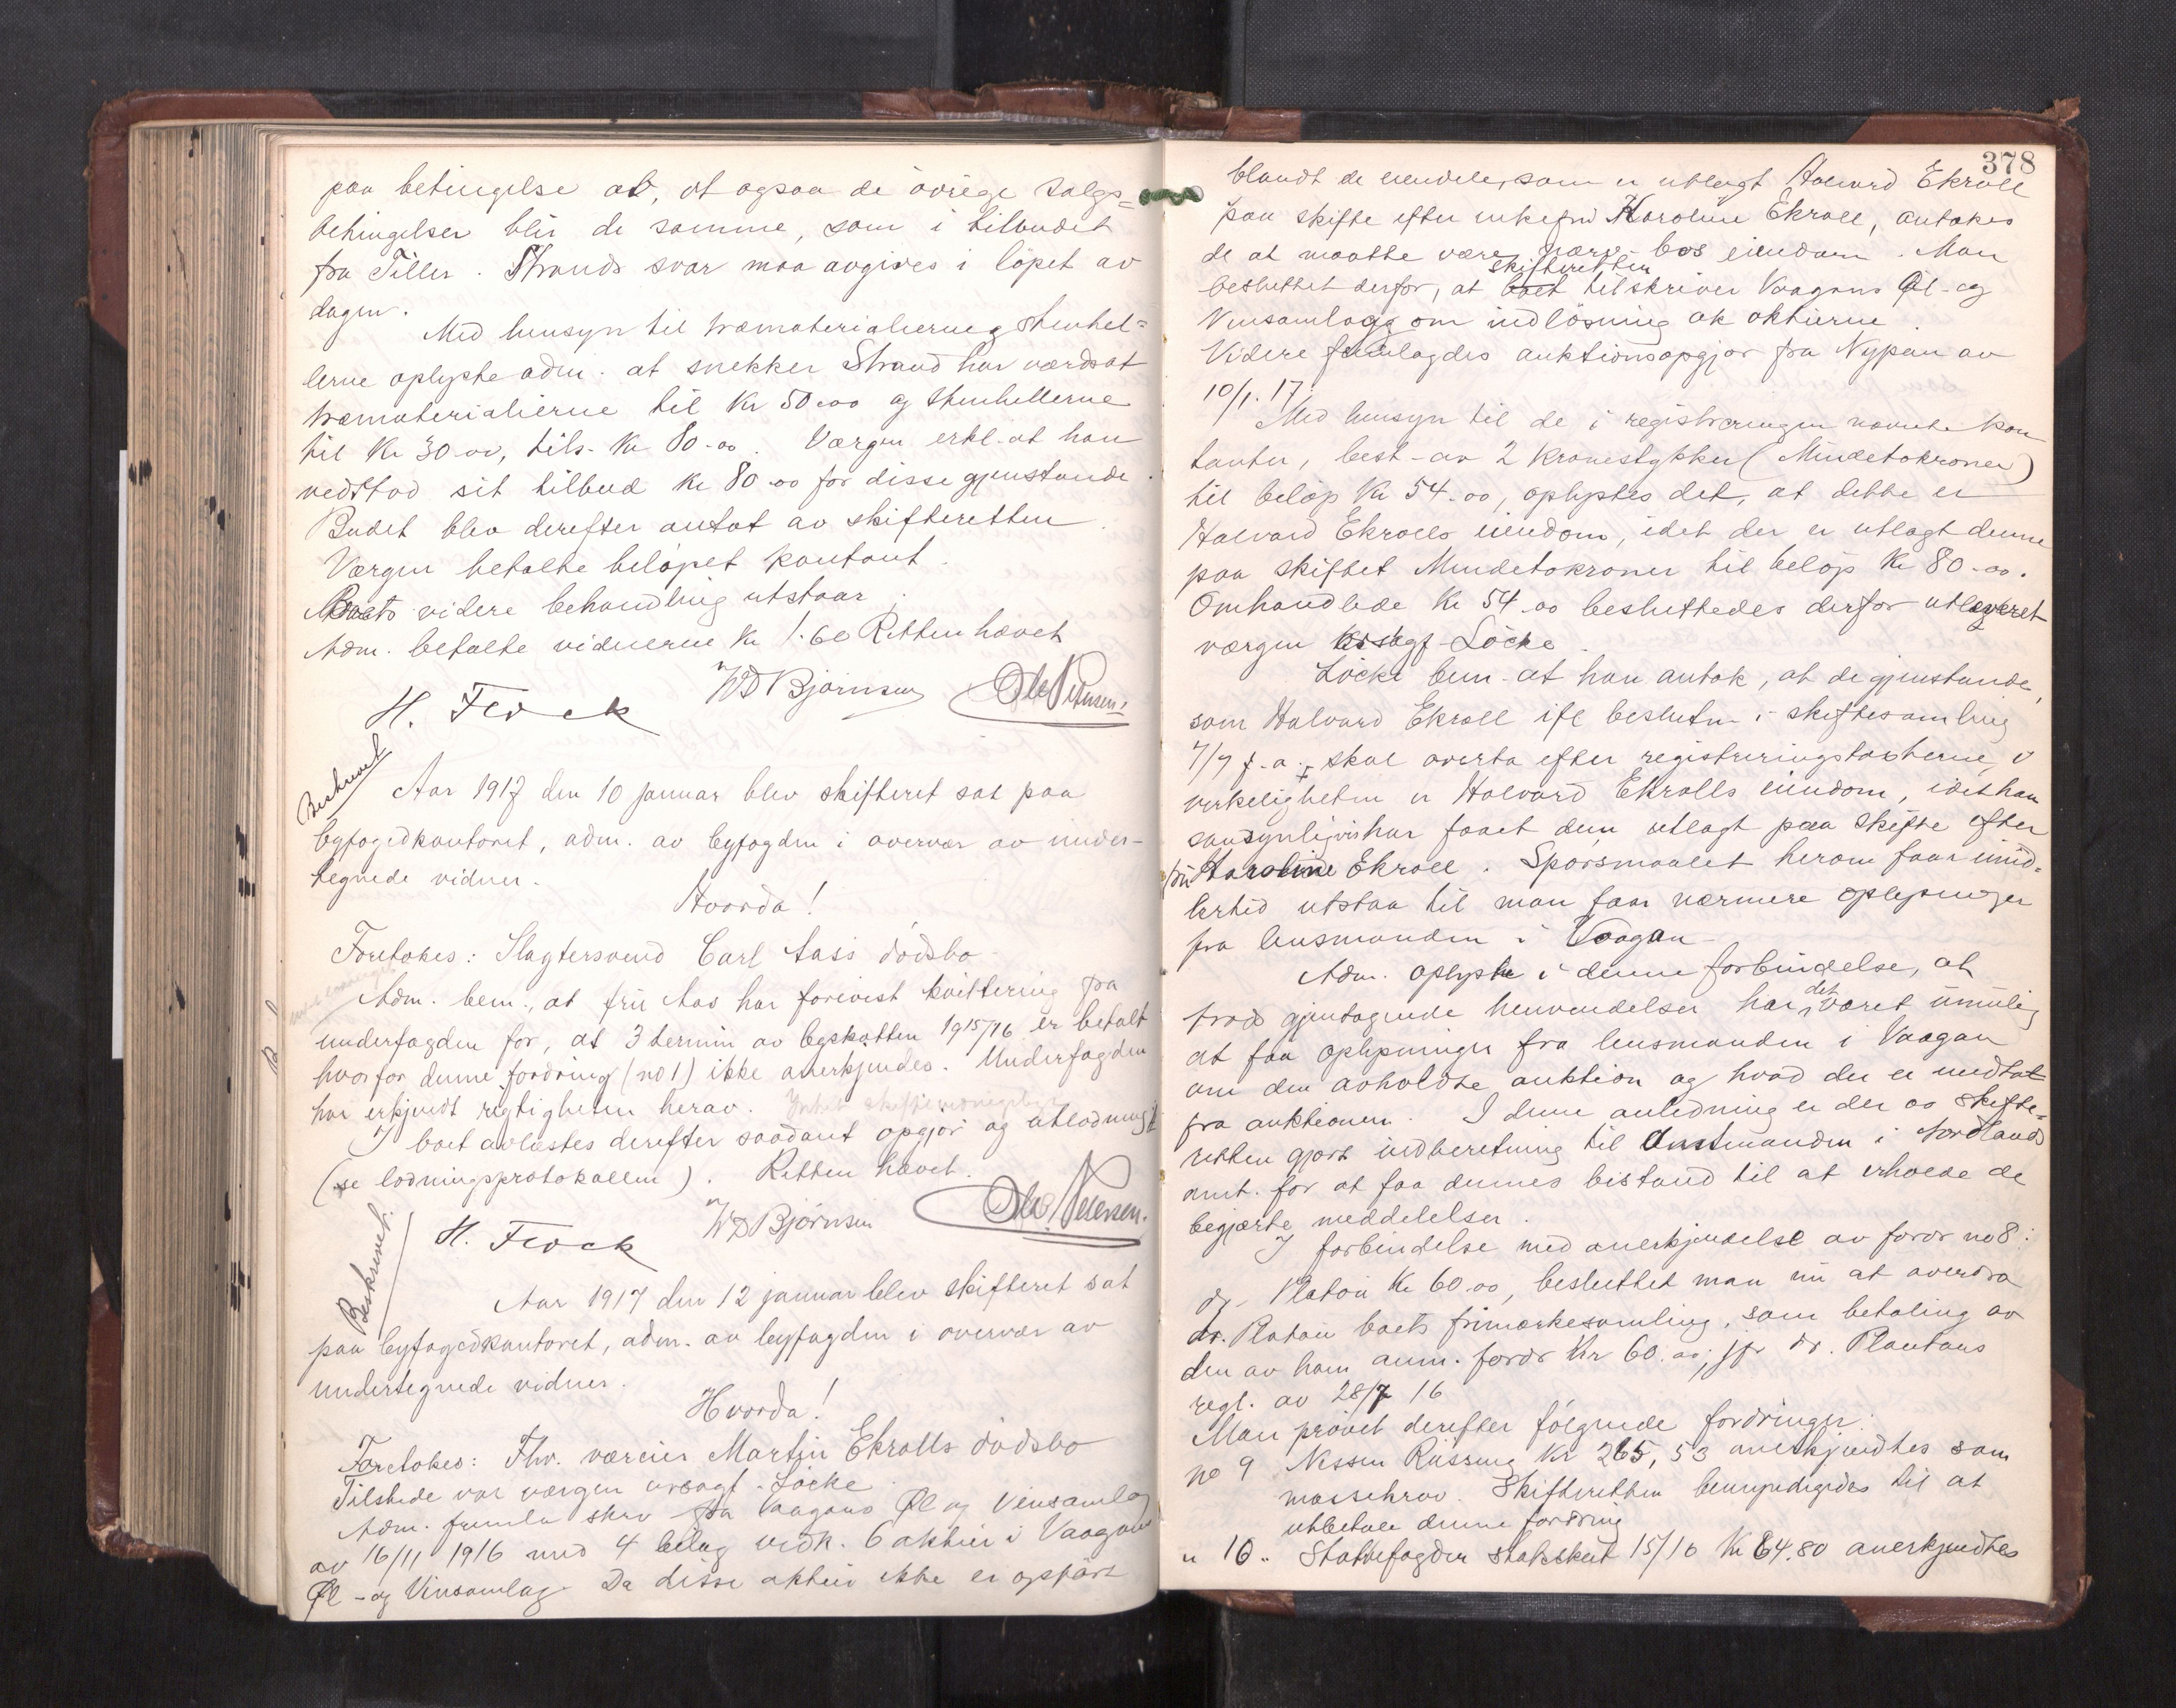 paa betingelse av, at ogsaa de øvrige salgs=
betingelser blir de samme, som i tilbudet
fra Tiller. Strands svar maa avgives i løpet av
dagen.
Med hensyn til træmaterialierne og stenhel=
lerne oplyste adm. at snekker Strand har værdsat
træmaterialierne til Kr 50.00 og stenhellerne
til Kr 30.00, tils. Kr 80.00. Værgen erkl. at han
vedstod sit tilbud Kr 80.00 for disse gjenstande.
Budet blev derefter antat av skifteretten.
Værgen betalte beløpet kontant.
Boets videre behandling utstaar.
Adm. betalte vidnerne Kr 1.60 Retten hævet
H. Flock WD Bjørnsen Ole Petersen.
Beskrevet
Aar 1917 den 10 januar blev skifteret sat paa
byfogedkontoret, adm. av byfogden i overvær av under-
tegnede vidner.
Hvorda!
Foretokes: Slagtersvend Carl Aas's dødsbo
Adm. bem., at fru Aas har forevist kvittering fra
underfogden for, at 3 termin av byskatten 1915/16 er betalt
hvorfor denne fordring (no 1) ikke anerkjendes. Underfogden
har erkjendt rigtigheten herav.
I boet avlæstes derefter saadant opgjør og utlodning
(se lodningsprotokollen). Retten hævet.
H. Flock WD Bjørnsen Ole Petersen.
Beskrevet.
Aar 1917 den 12 januar blev skifteret sat
paa byfogedkontoret, adm. av byfogden i overvær av
undertegnede vidner.
Hvorda!
Foretokes: Fhv. væreier Martin Ekrolls dødsbo
Tilstede var værgen orsagf. Löcke.
Adm. fremla skr. fra Vaagans Øl og Vinsamlag
av 16/11 1916 med 4 bilag vedk. 6 aktier i Vaagans
Øl- og Vinsamlag. Da disse aktier ikke er opført
378
blandt de eiendele, som er utlagt Halvard Ekroll
paa skifte efter enkefru Karoline Ekroll, antokes
de at maatte være nærv. bos eiendom. Man
skifteretten
besluttet derfor, at boet tilskriver Vaagans Øl- og
Vinsamlag om indløsning av aktierne.
Videre fremlagdes auktionsopgjør fra Nypan av
10/1.17.
Med hensyn til de i registreringen nævnte kon
tanter, best. av 2 kronestykker (Mindetokroner)
til beløp Kr 54.00, oplystes det, at dette er
Halvard Ekrolls eiendom, idet der er utlagt denne
paa skiftet Mindetokroner til beløp Kr 80.00.
Omhandlede Kr 54.00 besluttedes derfor utleveret
værgen orsagf. Löcke.
Löcke bem. at han antok, at de gjenstande,
som Halvard Ekroll ifl beslutn. i skiftesamling
7/9 f.a. skal overta efter registreringstaksterne, i
virkeligheten er Halvard Ekrolls eiendom, idet han
sandsynligvis har faaet dem utlagt paa skifte efter
fru Karoline Ekroll. Spørsmaalet herom faar imid=
lertid utstaa til man faar nærmere oplysninger
fra lensmanden i Vaagan.
Adm. oplyste i denne forbindelse, at
det
trods gjentagende henvendelser har været umulig
at faa oplysninger fra lensmanden i Vaagan
om den avholdte auktion og hvad der er medtat
fra auktionen. I denne anledning er der av skifte=
retten gjort indberetning til Amtmanden i Nordlands
amt. for at faa dennes bistand til at erholde de
begjærte meddelelser.
I forbindelse med anerkjendelse av fordr no 8:
dr. Platou Kr 60.00, besluttet man nu at overdra
dr. Platou boets frimerkesamling, som betaling av
den av ham anm. fordr Kr 60.00, jfr dr. Plautous
regl. av 28/7 16
Man prøvet derefter følgende fordringer:
no 9 Nissen Rüssing Kr 265,53 anerkjendtes som
massekrav. Skifteretten bemyndigedes til at
utbetale denne fordring
" 10. Stattefogden statsskat 15/16 Kr 64.80 anerkjendtes